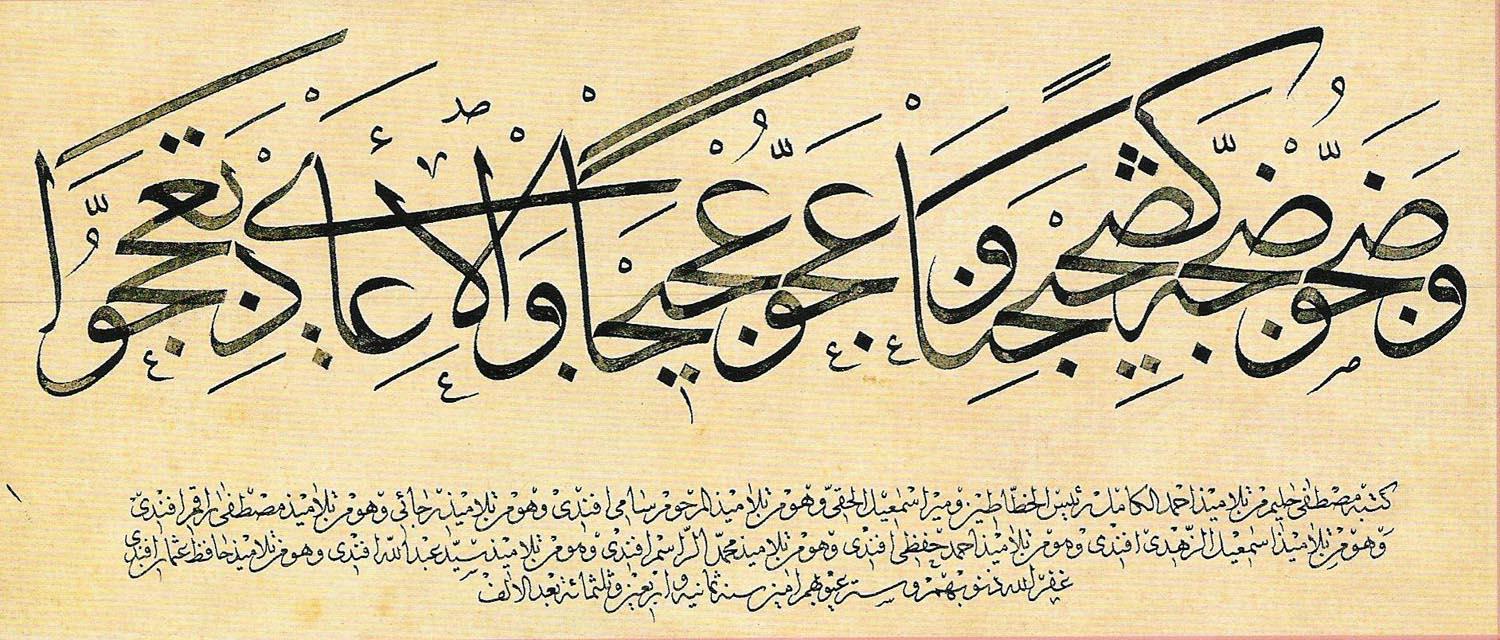 والأعادي
كتبه مصطفى حليم من تلاميذ احمد الكامل رئيس الخطاطين ومير اسمعيل الحقي وهو من تلاميذ المرحوم سامي افندي وهو من تلاميذ رجائي وهو من تلاميذ مصطفى راقم افندي
وهو من تلاميذ اسمعيل الزهدي افندي وهو من تلاميذ احمد حفظي افندي وهو من تلاميذ محمد الراسم افندي وهو من تلاميذ سيد عبد الله افندي وهو من تلاميذ حافظ عثمان افندي
غفر الله ذنوبهم وستر عيوبهم امين سنة ثمانية واربعين وثلثمائة بعد الالف